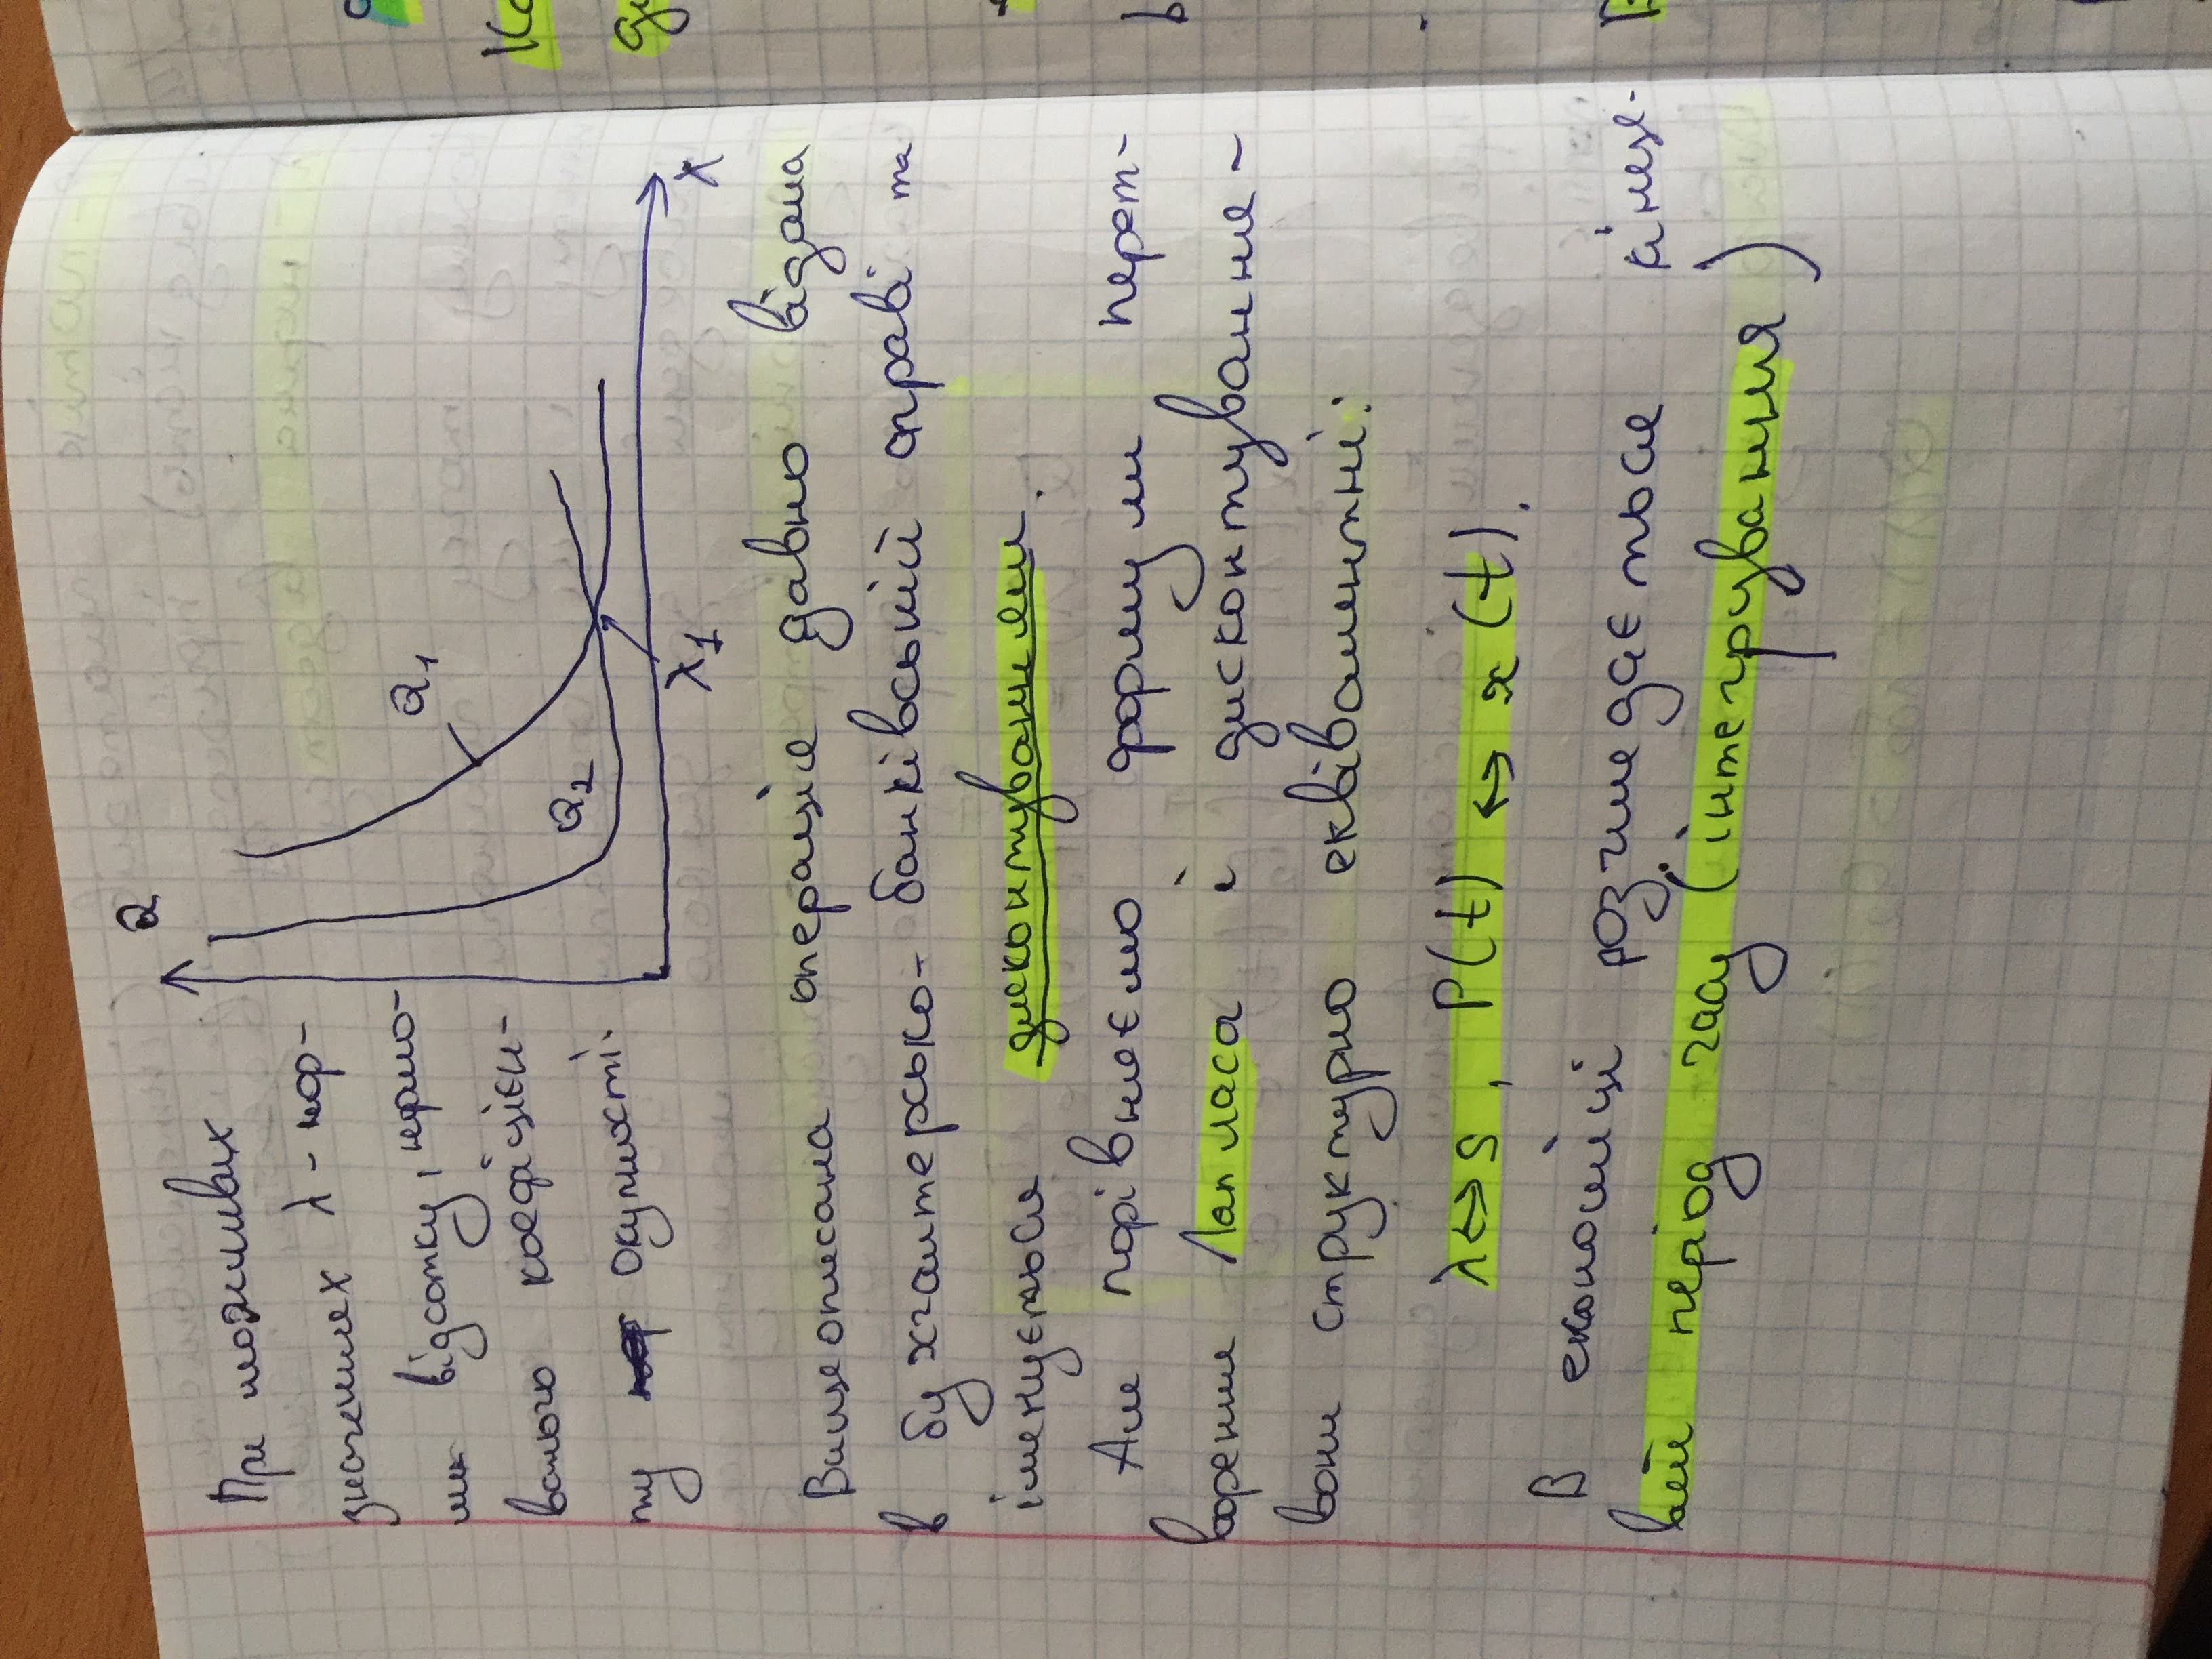 При можливих
значеннях λ - нор-
ми відсотку, нормо-
ваного коефіцієн-
ту окупності.
Q
Q₁
Q₂
λ₁
λ
Вищеописана операція давно відома
в бухгалтерсько-банківській справі та
іменується дисконтуванням.
Але порівнюємо формули перет-
ворення Лапласа і дисконтування -
вони структурно еквівалентні:
λ ↔ s, P(t) ↔ x(t).
В економіці розглядається кінце-
вий період часу (інтегрування)